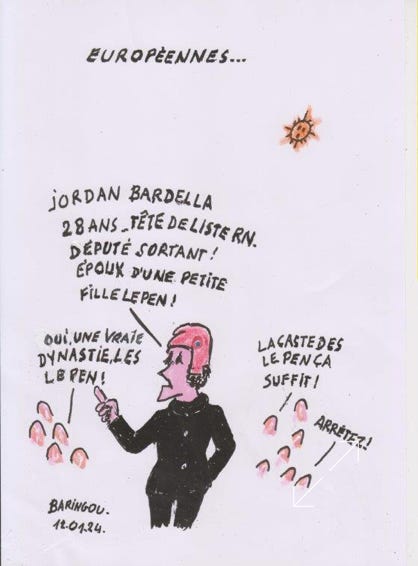 EUROPÉENNES...
JORDAN BARDELLA
28 ANS_TÊTE DE LISTE RN.
DÉPUTÉ SORTANT!
ÉPOUX D'UNE PETITE
FILLE LE PEN!
OUI, UNE VRAIE
DYNASTIE, LES
LE PEN!
LA CASTE DES
LE PEN ÇA
SUFFIT!
ARRÊTEZ!
BARINGOU.
12.01.24.